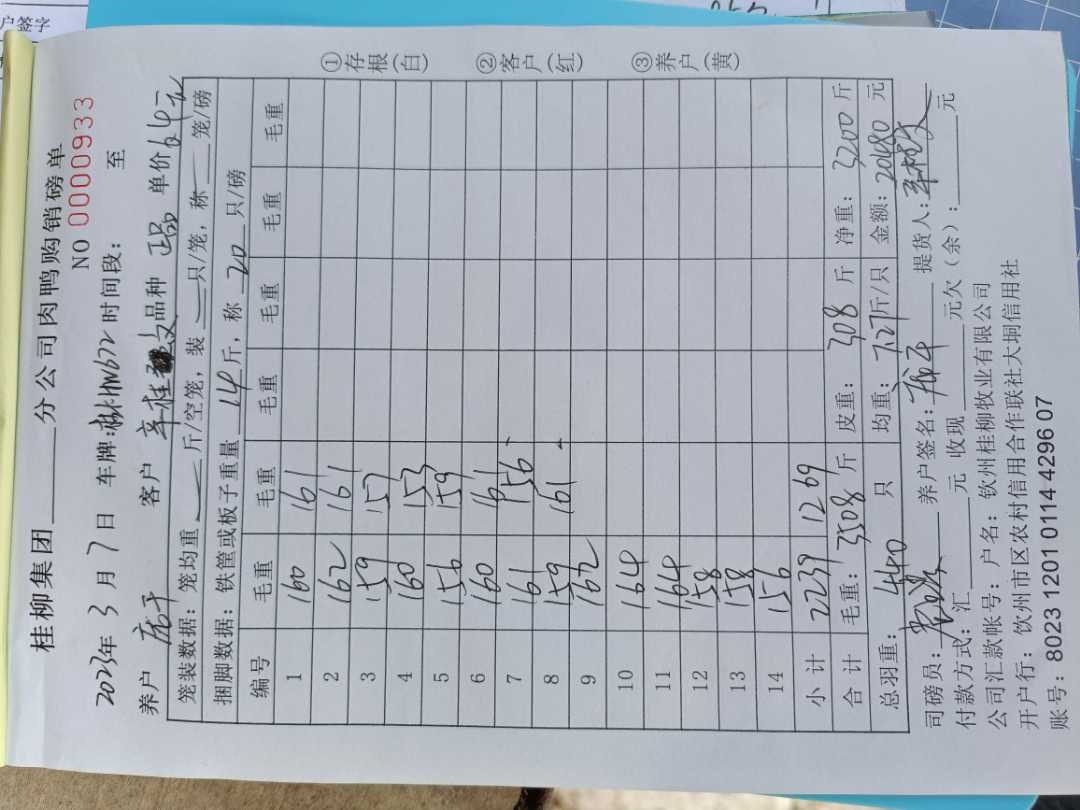 户签字
桂柳集团______分公司肉鸭购销磅单
NO 0000933
2023年 3 月 7 日 车牌: 时间段: 至
养户 客户 品种 正品 单价 6.4元
笼装数据：笼均重____斤/空笼，装____只/笼，称____笼/磅
捆脚数据：铁筐或板子重量 14 斤，称 20 只/磅
编号 毛重 毛重 毛重 毛重 毛重 毛重
1 160 161
2 162 161
3 159 157
4 160 153
5 156 159
6 160 161
7 161 156
8 159 161
9 162
10 164
11 164
12 158
13 158
14 156
小计 2239 1269
合计 毛重: 3508 斤 皮重: 308 斤 净重: 3200 斤
总羽重: 440 只 均重: 7.27斤/只 金额: 20480 元
司磅员: 养户签名: 提货人:
付款方式：汇______元 收现______元欠（余）:______元
公司汇款帐号：户名：钦州桂柳牧业有限公司
开户行：钦州市区农村信用合作联社大垌信用社
账号：8023 1201 0114 4296 07
①存根(白) ②客户(红) ③养户(黄)